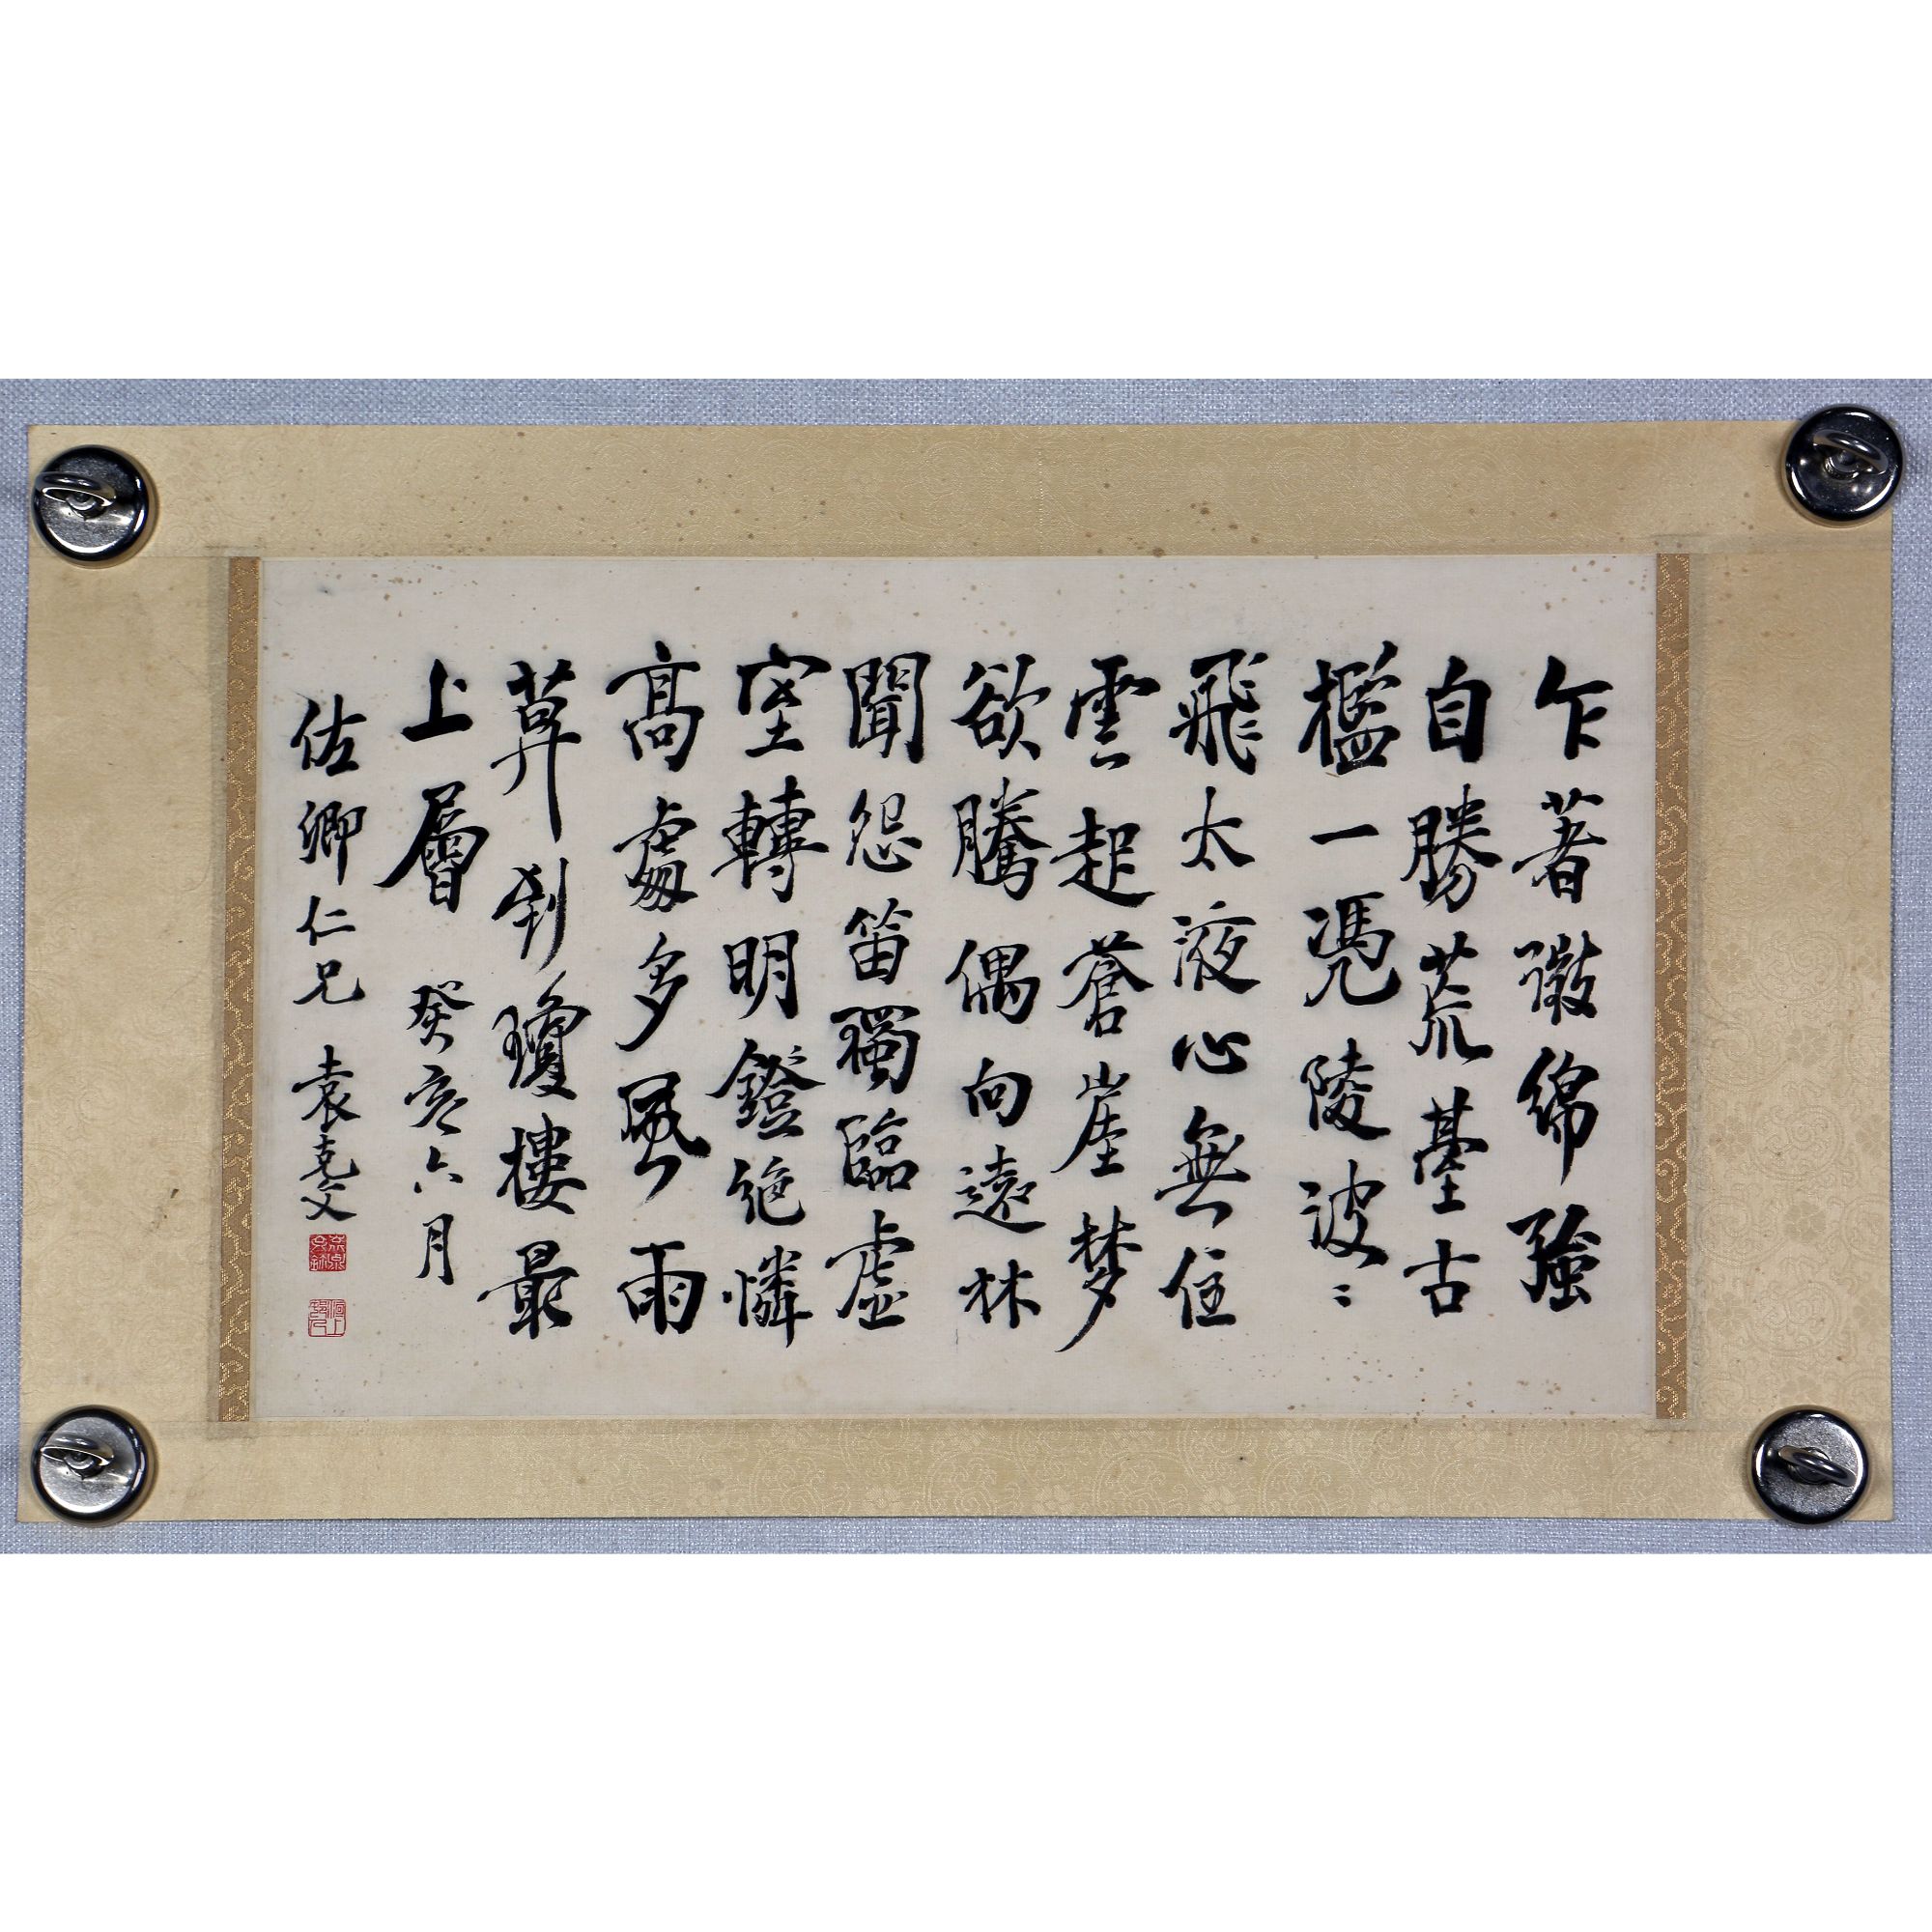 乍著微綿強
自勝荒臺古
檻一憑陵波〻
飛太液心無住
雲起蒼崖夢
欲騰偶向遠林
聞怨笛獨臨虛
室轉明鐙絕憐
高處多風雨
莫到瓊樓最
上層 癸亥六月
佐卿仁兄 袁克文